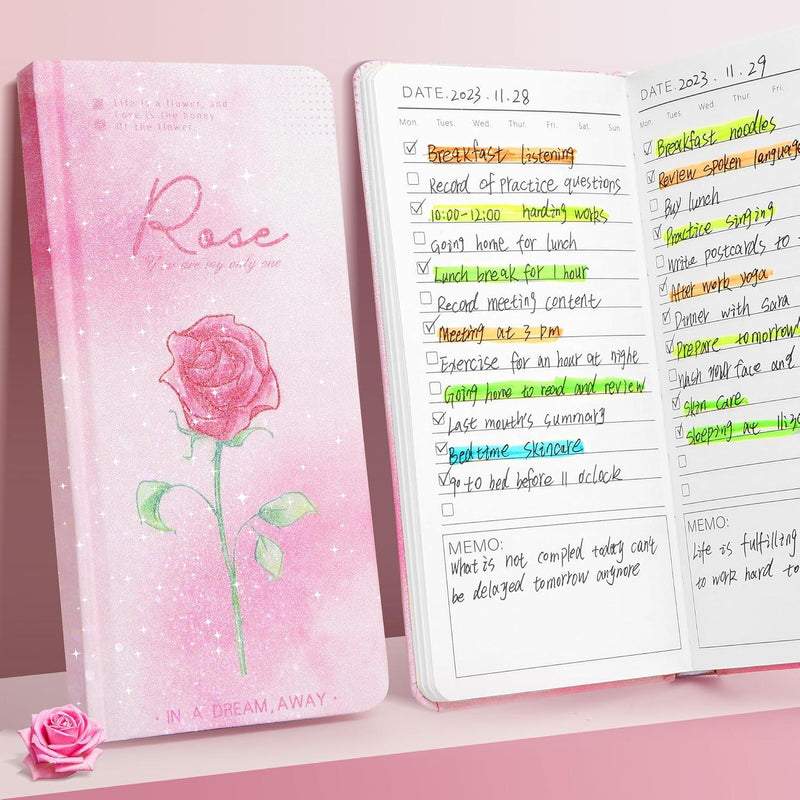 Life is a flower, and
Love is the honey
Of the flower.
Rose
You are my only one
· IN A DREAM, AWAY ·
DATE. 2023 . 11 . 28
Mon. Tues. Wed. Thur. Fri. Sat. Sun.
Breakfast listening
Record of Practice questions
10:00-12:00 harding works
Going home for lunch
Lunch break for 1 hour
Record meeting content
Meeting at 3 pm
Exercise for an hour at night
Going home to read and review
Last mouth's summary
Bedtime skincare
go to bed before 11 o'clock
MEMO:
What is not compled today can't
be delayed tomorrow anynore
DATE. 2023 . 11 . 29
Mon. Tues. Wed. Thur. Fri.
Breakfast noodles
Review spoken language
Buy lunch
Practice singing
Write postcards to
After work yoga
Dinner with Sara
Prepare tomorrow
wash your face and
Skin care
Sleeping at 11:30
MEMO:
Life is fulfilling
to work hard to